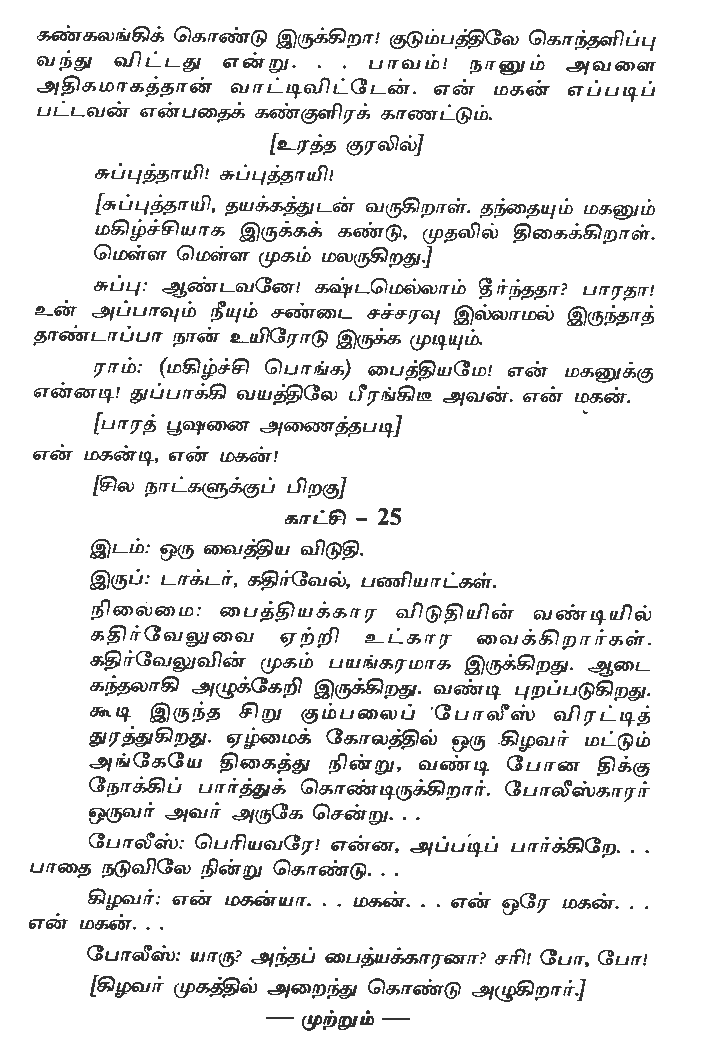 கண்கலங்கிக் கொண்டு இருக்கிறா! குடும்பத்திலே கொந்தளிப்பு
வந்து விட்டது என்று. . . பாவம்! நானும் அவளை
அதிகமாகத்தான் வாட்டிவிட்டேன். என் மகன் எப்படிப்
பட்டவன் என்பதைக் கண்குளிரக் காணட்டும்.
[உரத்த குரலில்]
சுப்புத்தாயி! சுப்புத்தாயி!
[சுப்புத்தாயி, தயக்கத்துடன் வருகிறாள். தந்தையும் மகனும்
மகிழ்ச்சியாக இருக்கக் கண்டு, முதலில் திகைக்கிறாள்.
மெள்ள மெள்ள முகம் மலருகிறது.]
சுப்பு: ஆண்டவனே! கஷ்டமெல்லாம் தீர்ந்ததா? பாரதா!
உன் அப்பாவும் நீயும் சண்டை சச்சரவு இல்லாமல் இருந்தாத்
தாண்டாப்பா நான் உயிரோடு இருக்க முடியும்.
ராம்: (மகிழ்ச்சி பொங்க) பைத்தியமே! என் மகனுக்கு
என்னடி! துப்பாக்கி வயத்திலே பீரங்கிடீ அவன். என் மகன்.
[பாரத் பூஷனை அணைத்தபடி]
என் மகன்டி, என் மகன்!
[சில நாட்களுக்குப் பிறகு]
காட்சி – 25
இடம்: ஒரு வைத்திய விடுதி.
இருப்: டாக்டர், கதிர்வேல், பணியாட்கள்.
நிலைமை: பைத்தியக்கார விடுதியின் வண்டியில்
கதிர்வேலுவை ஏற்றி உட்கார வைக்கிறார்கள்.
கதிர்வேலுவின் முகம் பயங்கரமாக இருக்கிறது. ஆடை
கந்தலாகி அழுக்கேறி இருக்கிறது. வண்டி புறப்படுகிறது.
கூடி இருந்த சிறு கும்பலைப் போலீஸ் விரட்டித்
துரத்துகிறது. ஏழ்மைக் கோலத்தில் ஒரு கிழவர் மட்டும்
அங்கேயே திகைத்து நின்று, வண்டி போன திக்கு
நோக்கிப் பார்த்துக் கொண்டிருக்கிறார். போலீஸ்காரர்
ஒருவர் அவர் அருகே சென்று. . .
போலீஸ்: பெரியவரே! என்ன, அப்படிப் பார்க்கிறே. . .
பாதை நடுவிலே நின்று கொண்டு. . .
கிழவர்: என் மகன்யா. . . மகன். . . என் ஒரே மகன். . .
என் மகன். . .
போலீஸ்: யாரு? அந்தப் பைத்யக்காரனா? சரி! போ, போ!
[கிழவர் முகத்தில் அறைந்து கொண்டு அழுகிறார்.]
— முற்றும் —